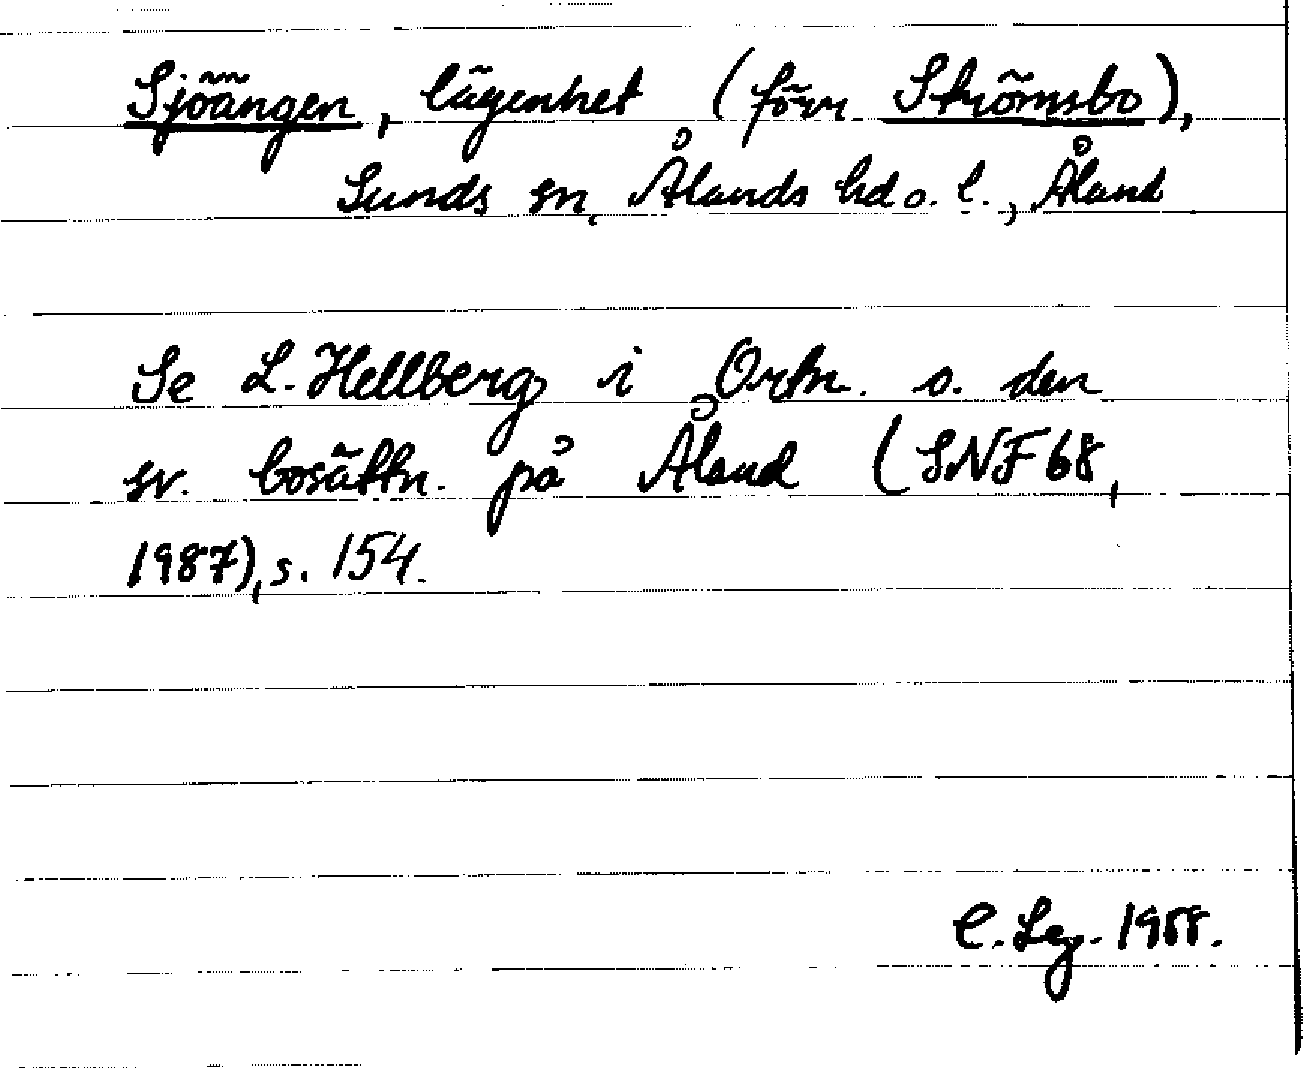 Sjöängen, lägenhet (förr Strömsbo),
Sunds sn, Ålands hd o. l., Åland
Se L. Hellberg i Ortn. o. den
sv. bosättn. på Åland (SNF 68,
1987), s. 154.
C. Leg. 1988.